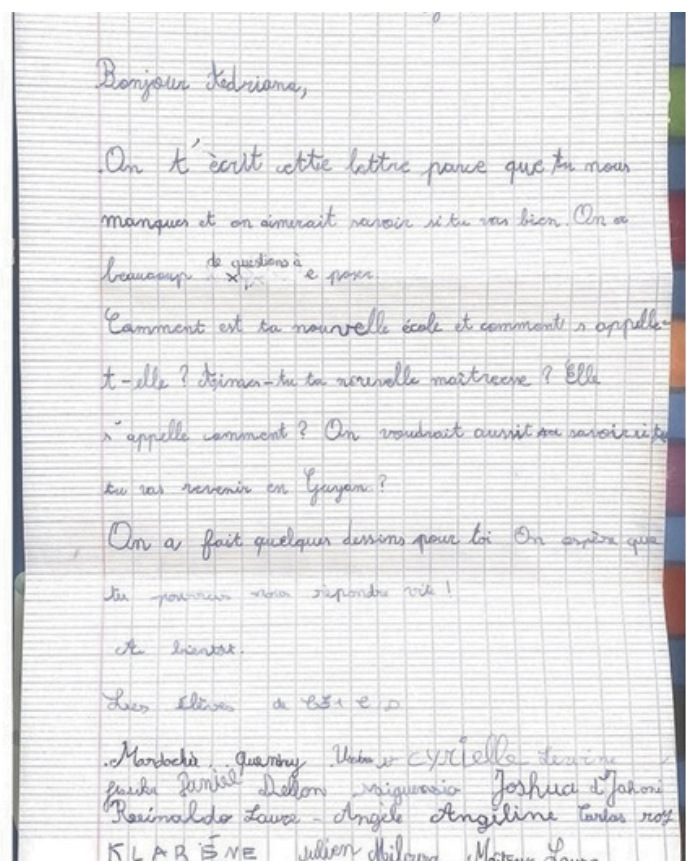 Bonjour Adriana,
On t'ècrit cette lettre parce que tu nous
manques et on aimerait savoir si tu vas bien. On a
beaucoup de questions à e poser.
Comment est ta nouvelle école et comment s'appelle-
t-elle ? Aimes-tu ta nouvelle maîtresse ? Elle
s'appelle comment ? On voudrait aussi savoir si tu
tu vas revenir en Guyan ?
On a fait quelques dessins pour toi On espère que
tu pourras nous répondre vite !
A bientot.
Les élèves de
Mardochée cyrielle
Daniel Dellon Joshua d'Jahoni
Reinaldo Laure - Angèle Angiline Carlos roy
KLARENE Julien Laura